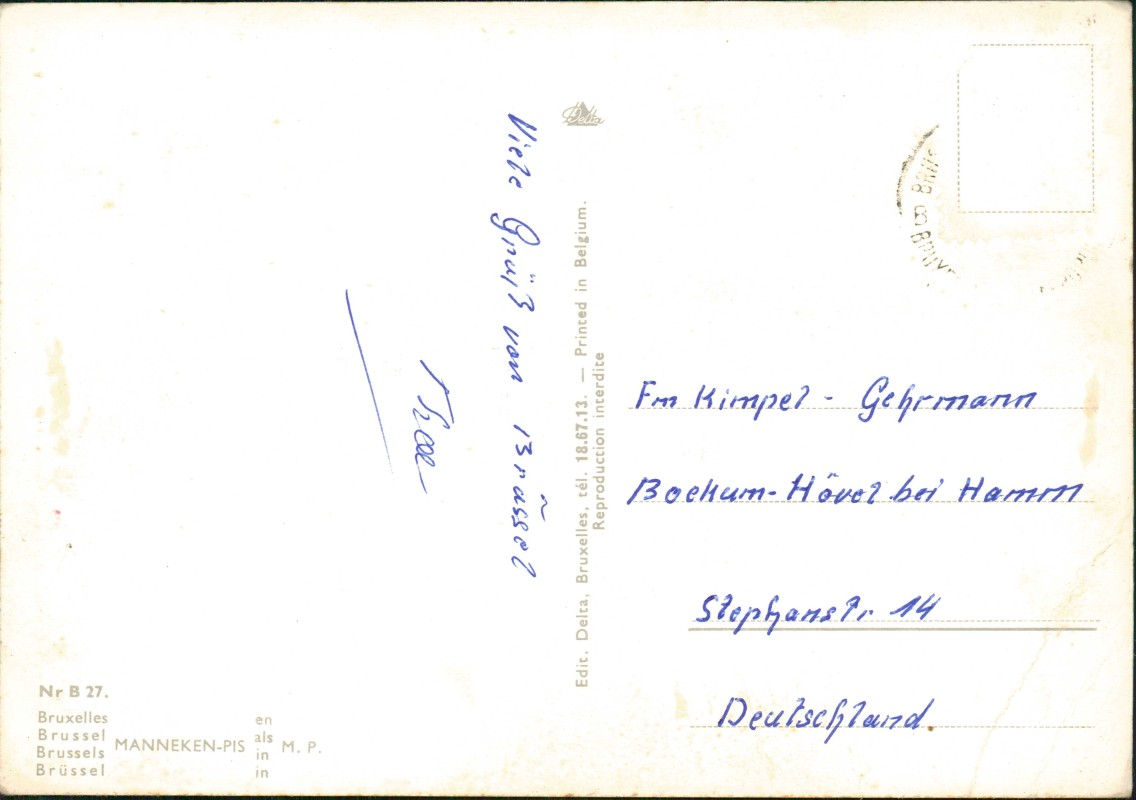 Viele Grüß von Brüssel
Delta
Edit. Delta, Bruxelles, tél. 18.67.13. — Printed in Belgium.
Reproduction interdite
Fm Kimpel - Gehrmann
Bockum-Hövel bei Hamm
Stephanstr 14
Deutschland.
Nr B 27.
Bruxelles en
Brussel als
Brussels in
Brüssel in
MANNEKEN-PIS M. P.